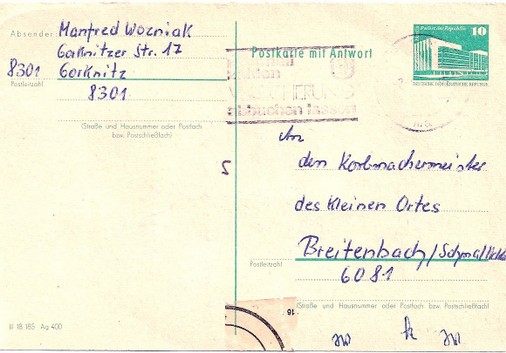 Absender
Manfred Wozniak
Gorknitzer Str. 17
8301 Gorknitz
Postleitzahl
8301
Straße und Hausnummer oder Postfach
bzw. Postschließfach)
III 18 185 Ag 400
Postkarte mit Antwort
Palast der Republik 10
DEUTSCHE DEMOKRATISCHE REPUBLIK
abbuchen lassen
5
An
den Korbmachermeister
des kleinen Ortes
Breitenbach/Schmal
Postleitzahl
6081
16
(Straße und Hausnummer oder Postfach bzw. Postschließfach)